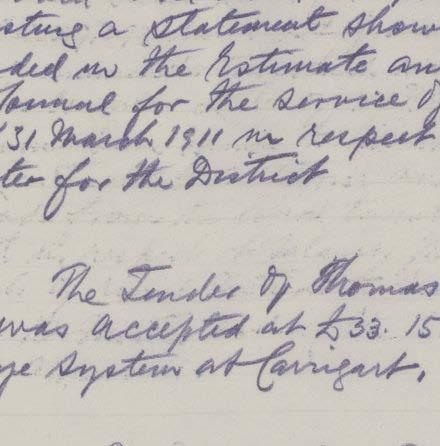 sting a statement show
ded in the Estimate an
Council for the service of
31 March 1911 in respect
ter for the District
The Tender of Thomas
was accepted at £33. 15
ge system at Carrigart.